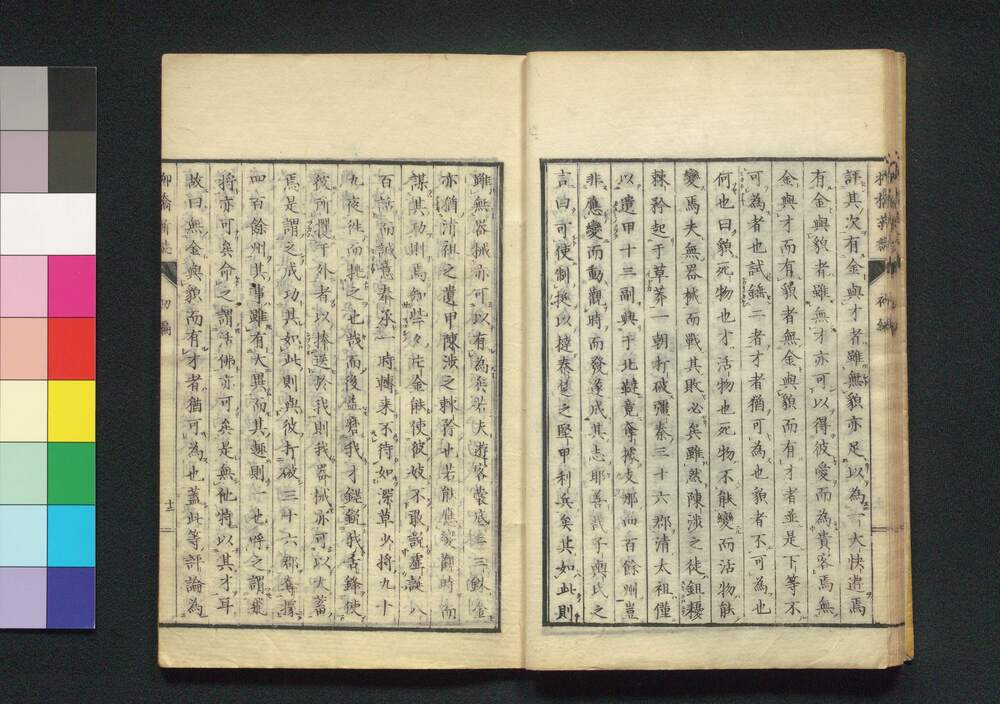 評其次有金與才者雖無貌亦足以為一大快遊焉
有金與貌者雖無才亦可以得彼愛而為貴客焉無
金與才而有貌者無金與貌而有才者並是下等不
可為者也試鑠二者才者猶可為也貌者不可為也
何也曰貌死物也才活物也死物不能變而活物能
變焉夫無器械而戰其敗必矣雖然陳涉之徒鉏耰
棘矜起于草莽一朝打破彊秦三十六郡清太祖僅
以遺甲十三副興于北韃竟奪據支那四百餘州豈
非應變而動觀時而發遂成其志耶善哉子輿氏之
言曰可使制挺以撻秦楚之堅甲利兵矣其如此則
雖無器械亦可以有為矣若夫遊客囊底二三銖金
亦猶清祖之遺甲陳涉之棘矜也若能應變觀時而
謀其功則焉知些々片金能使彼妓不敢說虛誕八
百話而誠意奉承一時轉来不待如深草少將九十
九夜徃而挑之也哉而後益磨我才鋒銳我舌鋒使
彼所擭于外者以捧送於我則我器械亦可以大蓄
焉是謂之成功其如此則與彼打破三十六郡奪據
四百餘州其事雖有大異而其趣則一也呼之謂飛
將亦可矣命之謂活佛亦可矣是無他特以其才耳
故曰無金與貌而有才者猶可為也蓋此等評論為
柳橋新誌
初編
十二